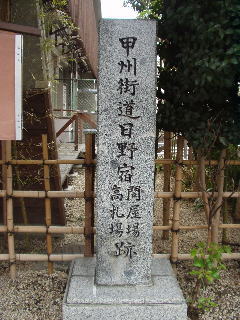 甲州街道日野宿
問屋場
高札場
跡